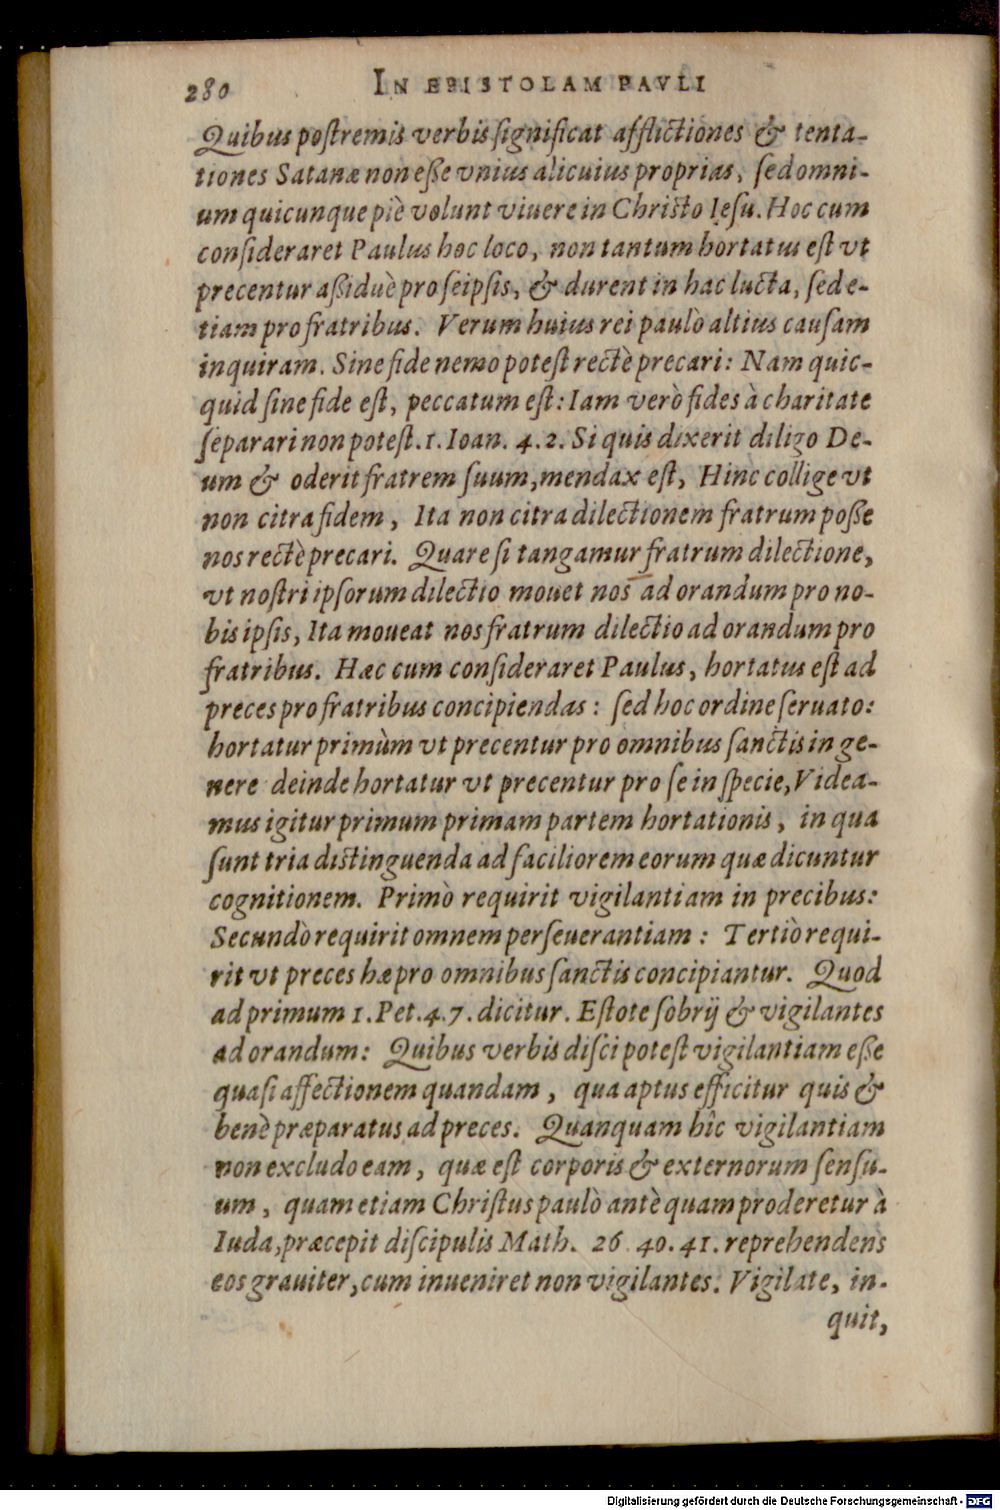 280 IN EPISTOLAM PAVLI
Quibus postremis verbis significat afflictiones & tenta-
tiones Satanæ non eße vnius alicuius proprias, sed omni-
um quicunque piè volunt viuere in Christo Iesu. Hoc cum
consideraret Paulus hoc loco, non tantum hortatus est vt
precentur aßiduè pro seipsis, & durent in hac lucta, sed e-
tiam pro fratribus. Verum huius rei paulò altius causam
inquiram. Sine fide nemo potest rectè precari: Nam quic-
quid sine fide est, peccatum est: Iam verò fides à charitate
separari non potest. 1. Ioan. 4. 2. Si quis dixerit diligo De-
um & oderit fratrem suum, mendax est, Hinc collige vt
non citra fidem, Ita non citra dilectionem fratrum poße
nos rectè precari. Quare si tangamur fratrum dilectione,
vt nostri ipsorum dilectio mouet nos ad orandum pro no-
bis ipsis, Ita moueat nos fratrum dilectio ad orandum pro
fratribus. Hæc cum consideraret Paulus, hortatus est ad
preces pro fratribus concipiendas: sed hoc ordine seruato:
hortatur primùm vt precentur pro omnibus sanctis in ge-
nere deinde hortatur vt precentur pro se in specie, Videa-
mus igitur primum primam partem hortationis, in qua
sunt tria distinguenda ad faciliorem eorum quæ dicuntur
cognitionem. Primò requirit vigilantiam in precibus:
Secundò requirit omnem perseuerantiam: Tertiò requi-
rit vt preces hæ pro omnibus sanctis concipiantur. Quod
ad primum 1. Pet. 4. 7. dicitur. Estote sobrij & vigilantes
ad orandum: Quibus verbis disci potest vigilantiam eße
quasi affectionem quandam, qua aptus efficitur quis &
benè præparatus ad preces. Quanquam hîc vigilantiam
non excludo eam, quæ est corporis & externorum sensu-
um, quam etiam Christus paulò antè quam proderetur à
Iuda, præcepit discipulis Math. 26. 40. 41. reprehendens
eos grauiter, cum inueniret non vigilantes. Vigilate, in-
quit,
Digitalisierung gefördert durch die Deutsche Forschungsgemeinschaft - DFG